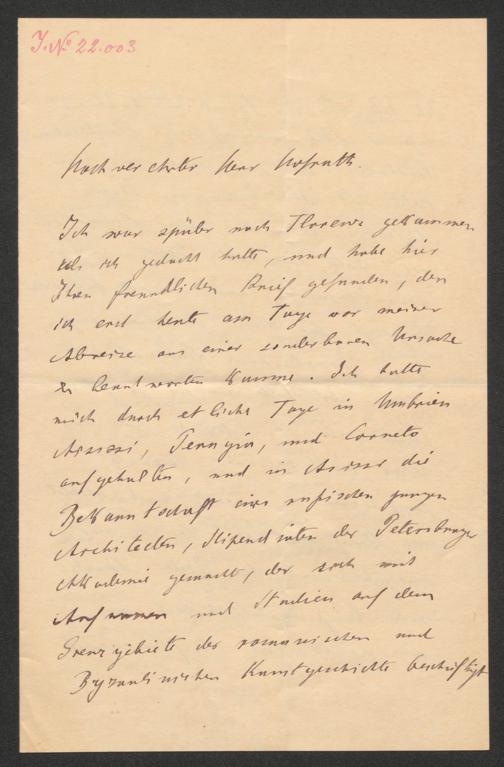 J. No 22.003
Hochverehrter Herr Hofrath.
Ich war später nach Florenz gekommen
als ich gedacht hatte, und habe hier
Ihren freundlichen Brief gefunden, den
ich erst heute am Tage vor meiner
Abreise aus einer sonderbaren Ursache
zu beantworten komme. Ich hatte
mich durch etliche Tage in Umbrien
Assissi, Perugia, und Corneto
aufgehalten, und in Assissi die
Bekanntschaft eines russischen jungen
Architecten, Stipendiaten der Petersburger
Akademie gemacht, der sich mit
Aufnamen und Studien auf dem
Grenzgebiete der romanischen und
Byzantinischen Kunstgeschichte beschäftigt